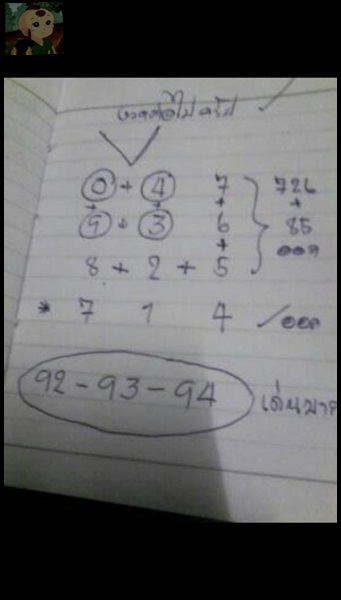 งวดต่อไปครับ ✓
0 + 4 7 726
+ + + +
9 + 3 6 85
+ ออก
8 + 2 + 5
* 7 1 4 ✓ออก
92 - 93 - 94 เด่นมาก